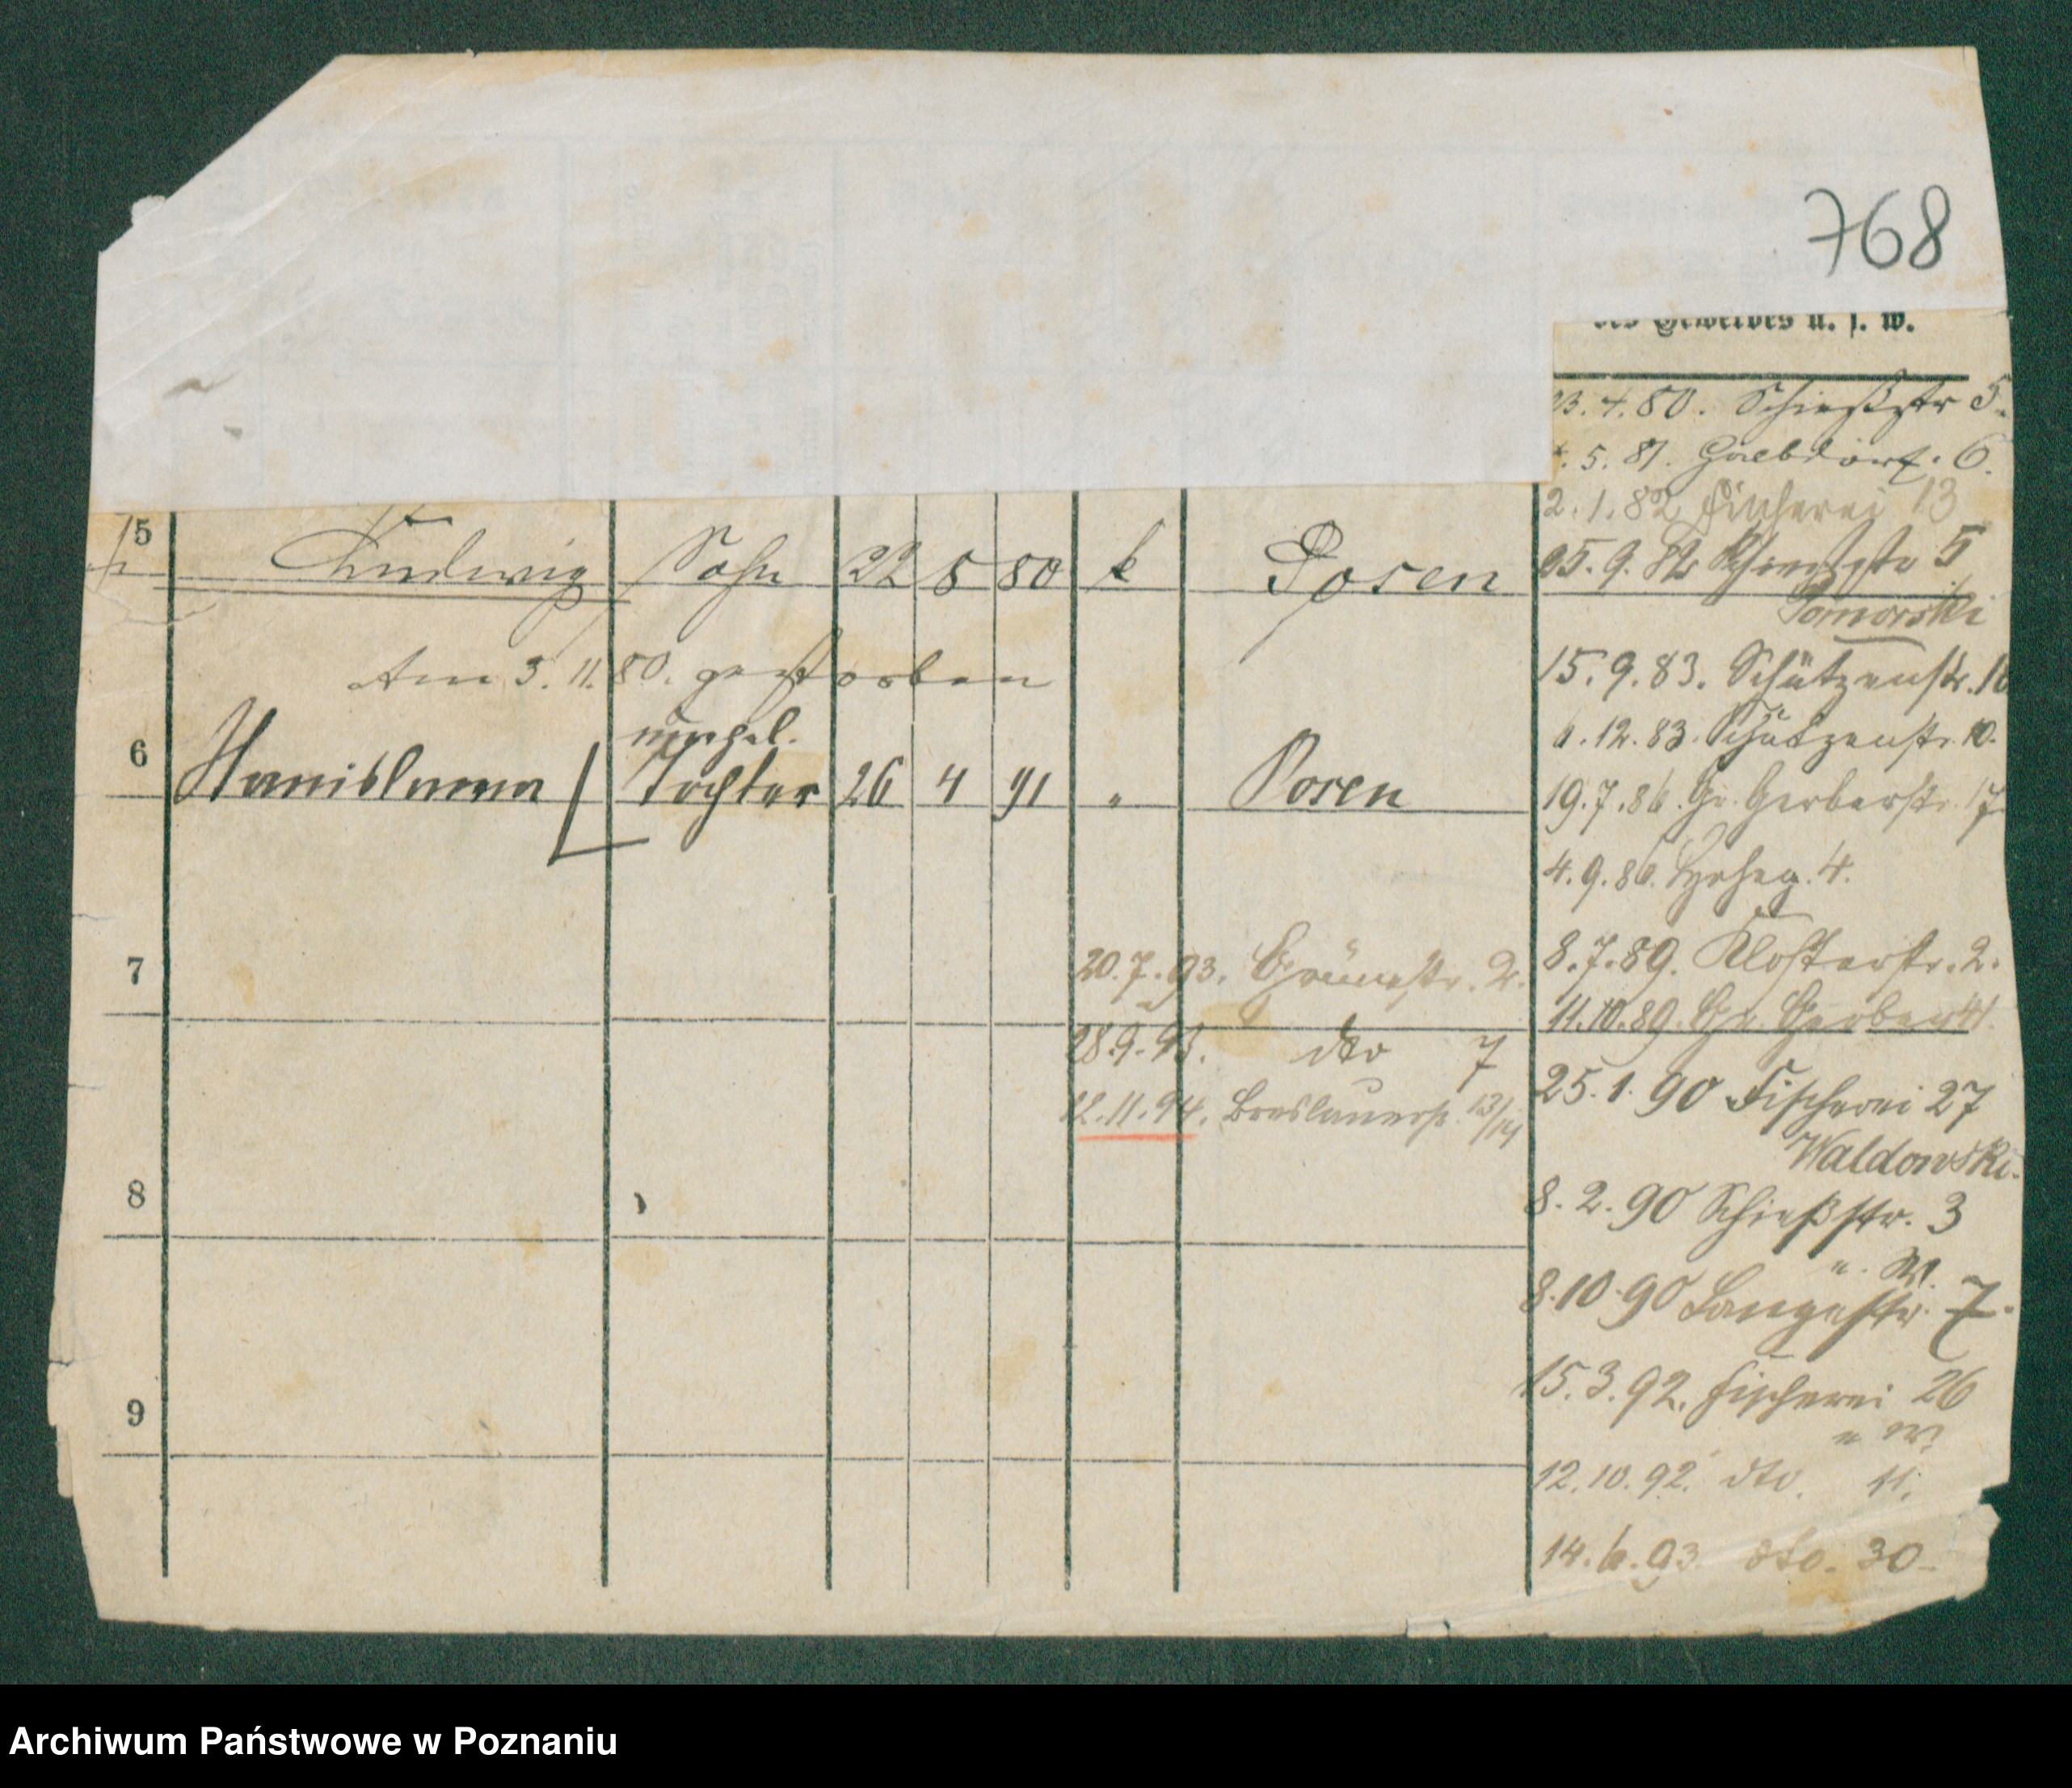 768
des Gewerbes u. s. w.
23.4.80. Schießstr 5.
5.81. Halbdorf. 6.
2.1.82 Fischerei 13
25.9.82 Schießstr 5
Pomorski
15.9.83. Schützenstr. 10
6.12.83. Schützenstr. 10.
19.7.86. Gr. Gerberstr. 17
4.9.86. 4.
8.7.89. Klosterstr. 2.
11.10.89. Gr. Gerber 41.
25.1.90 Fischerei 27
Waldowski.
8.2.90 Schießstr. 3
" W.
8.10.90 Langestr. 7.
15.3.92. Fischerei 26
" W.
12.10.92. dto. 11.
14.6.93. dto. 30
5 Ludwig Sohn 22 8 80 k Posen
Am 3.11.80. gestorben
unehel.
6 Stanislawa Tochter 26 4 91 " Posen
7
20.7.93. Grünestr. 2.
28.9.93. dto 7
12.11.94. Breslauerstr. 13/14
8
9
Archiwum Państwowe w Poznaniu